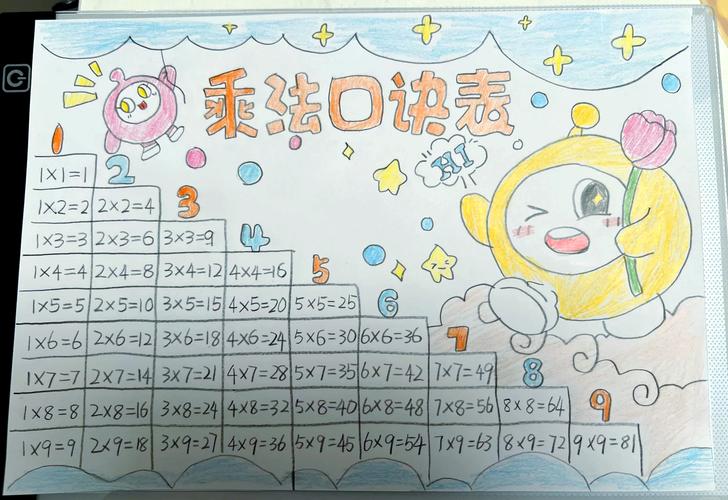 乘法口诀表
HI
1
1×1=1 2
1×2=2 2×2=4 3
1×3=3 2×3=6 3×3=9 4
1×4=4 2×4=8 3×4=12 4×4=16 5
1×5=5 2×5=10 3×5=15 4×5=20 5×5=25 6
1×6=6 2×6=12 3×6=18 4×6=24 5×6=30 6×6=36 7
1×7=7 2×7=14 3×7=21 4×7=28 5×7=35 6×7=42 7×7=49 8
1×8=8 2×8=16 3×8=24 4×8=32 5×8=40 6×8=48 7×8=56 8×8=64 9
1×9=9 2×9=18 3×9=27 4×9=36 5×9=45 6×9=54 7×9=63 8×9=72 9×9=81